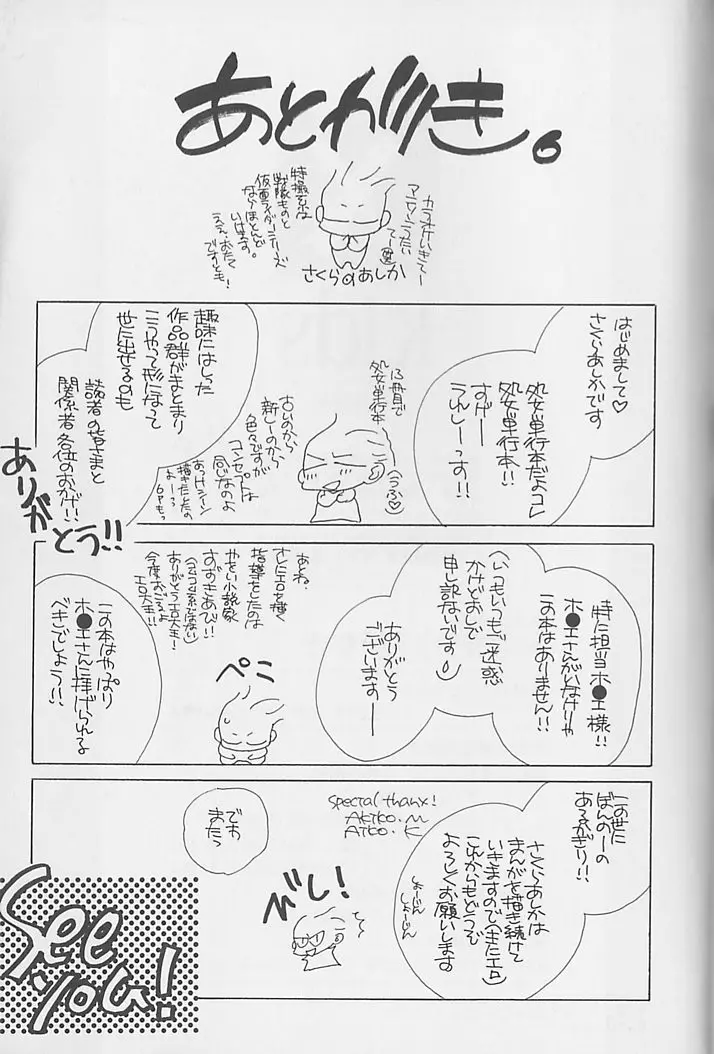 あとがき。
カラオケいきてー
アニソンうたいてー
特撮系は
戦隊ものと
仮面ライダーシリーズ
ならほとんど
いけます。
ええ、おたく
ですとも!
さくらのあしか
はじめまして♡
さくらあしかです
処女単行本だよコレ
処女単行本!!
すげーー
うれしーっす!!
13冊目で
処女単行本
(うふ♡
古いのから
新しーのから
色々ですが
コンセプトは
同じなのよ
あっけシーン
描きたとたの
よーっ
6Pもっ
趣味にはしった
作品群がまとまり
こうやって形になって
世に出せるのも
読者の皆さまと
関係者各位のおかげ!!
ありがとう!!
特に担当ホ●エ様!!
ホ●エさんがいなけりゃ
この本はありません!!
(いつもいつもご迷惑
かけどおしで
申し訳ないです)
ありがとう
ございます——
あとね、
さしたエロを描く
指導をしたのは
やおい小説家
すずきあび!!
ありがとうエロ大王!
今度おごるよ
エロ大王!!
ペこ
この本はやっぱり
ホ●エさんに捧げられる
べきでしょう!!
この世に
ぼんのーの
あるかぎり!!
さくらあしかは
まんがを描き続けて
いきますので(またエロ)
これからもどうぞ
よろしくお願いします
しょーじん
しょーじん
Special thanx!
AKIKO.M
AIKO.K
でわ
またっ
びし!
See
you!